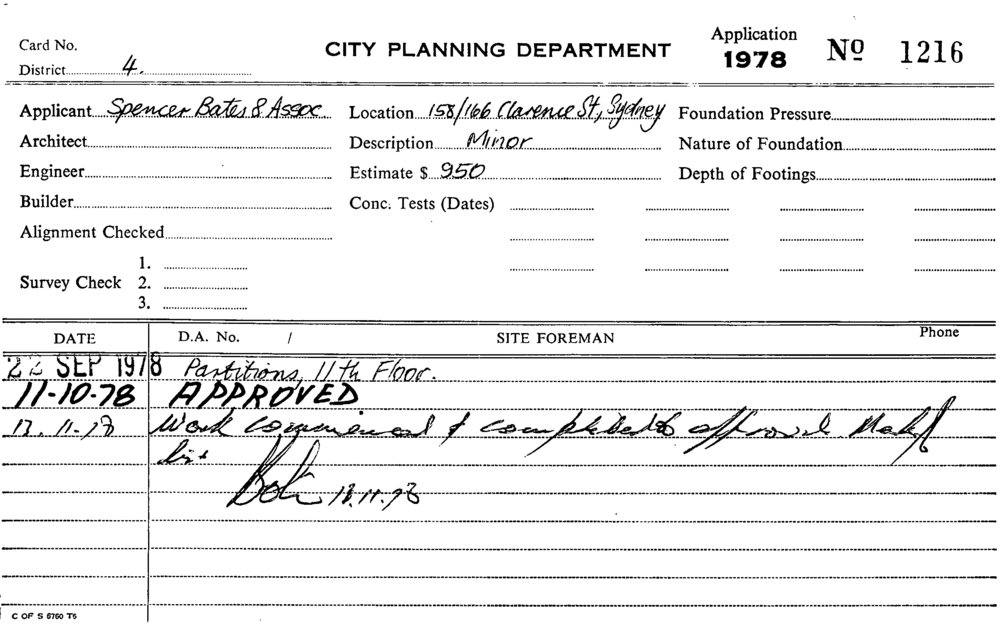 Card No.
CITY PLANNING DEPARTMENT
Application
1978
No 1216
District 4.
Applicant Spencer Bates & Assoc
Location 158/166 Clarence St, Sydney
Foundation Pressure
Architect
Description Minor
Nature of Foundation
Engineer
Estimate $ 950
Depth of Footings
Builder
Conc. Tests (Dates)
Alignment Checked
Survey Check
1.
2.
3.
DATE D.A. No. / SITE FOREMAN Phone
22 SEP 1978 Partitions, 11th Floor.
11-10-78 APPROVED
13.11.78 Work commenced & completed to approval
13.11.78
C OF S 6760 T6